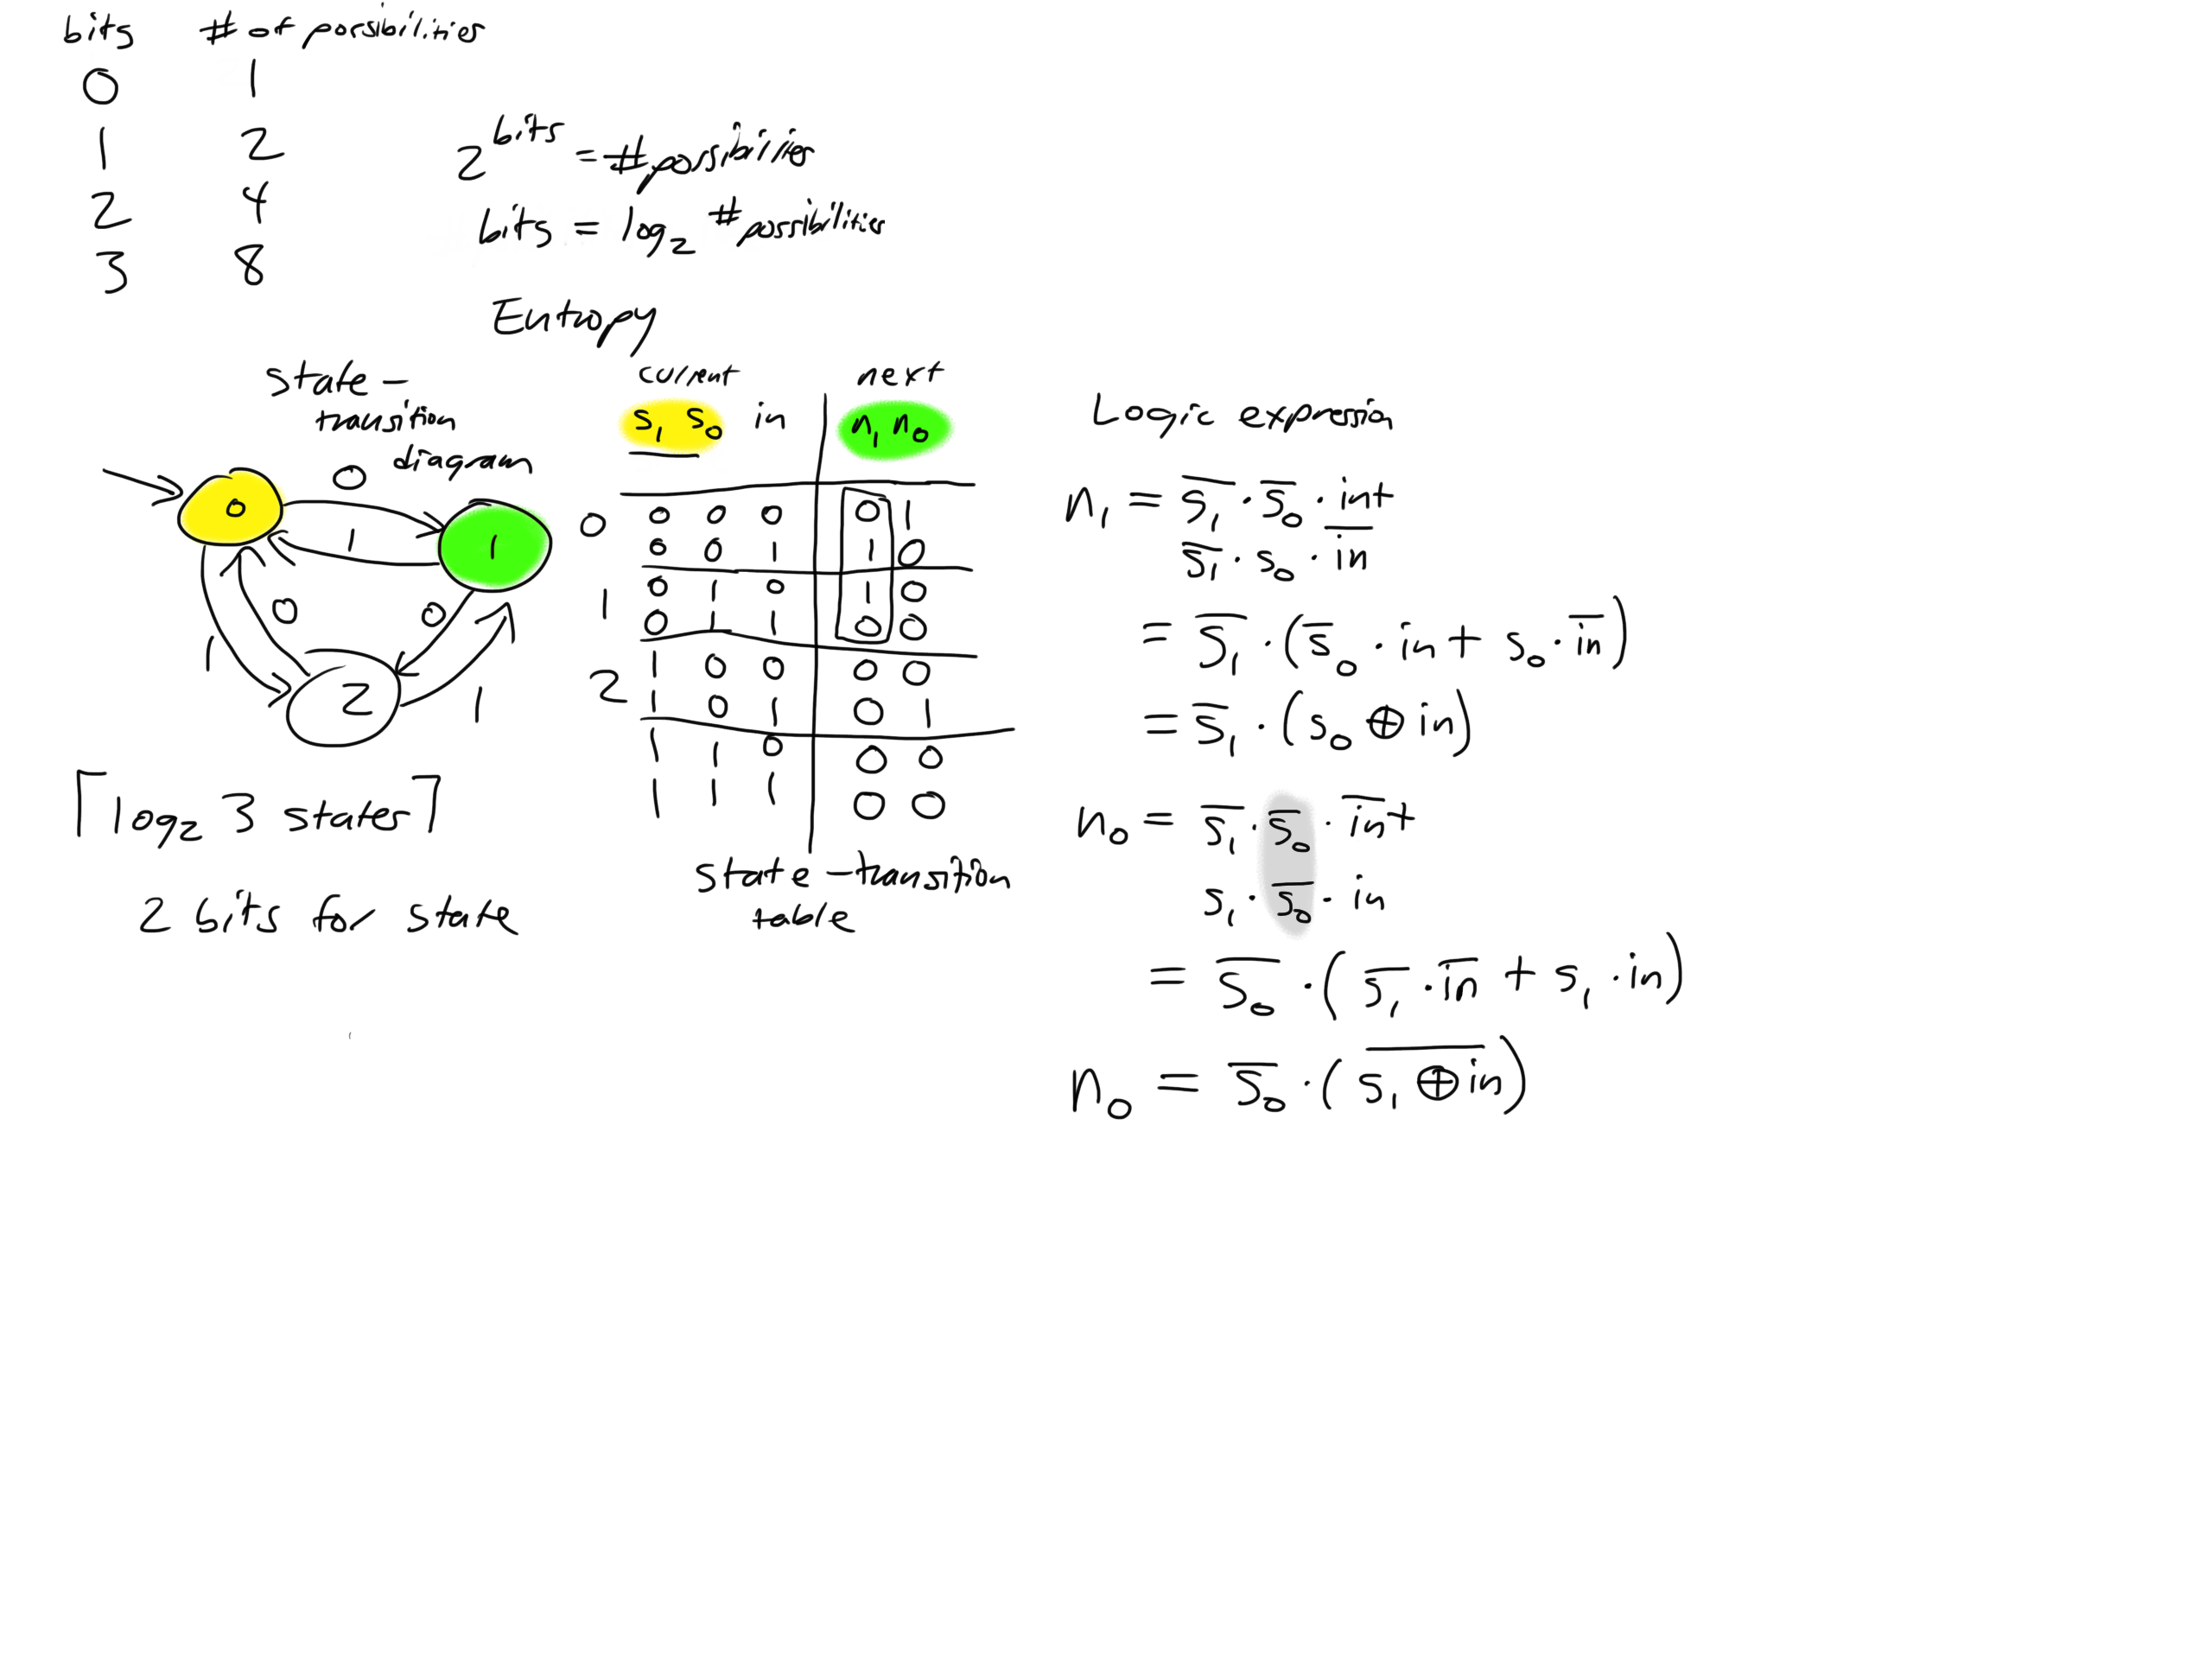 bits # of possibilities
0 1
1 2
2 4
3 8
2^bits = #possibilities
bits = log₂ #possibilities
Entropy
state-
transition
diagram
0
0
1
1
0
1
0
2
1
⌈log₂ 3 states⌉
2 bits for state
current next
s₁ s₀ in n₁ n₀
0 0 0 0 0 1
0 0 1 1 0
1 0 1 0 1 0
0 1 1 0 0
2 1 0 0 0 0
1 0 1 0 1
1 1 0 0 0
1 1 1 0 0
state-transition
table
Logic expression
n₁ = s̅₁ · s̅₀ · in +
s̅₁ · s₀ · i̅n̅
= s̅₁ · (s̅₀ · in + s₀ · i̅n̅)
= s̅₁ · (s₀ ⊕ in)
n₀ = s̅₁ · s̅₀ · i̅n̅ +
s₁ · s̅₀ · in
= s̅₀ · (s̅₁ · i̅n̅ + s₁ · in)
n₀ = s̅₀ · (s̅₁̅ ̅⊕̅ ̅i̅n̅)